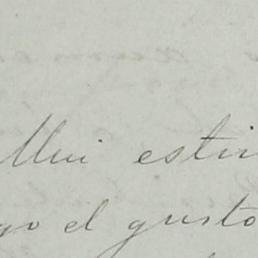 Mui estim
go el gusto